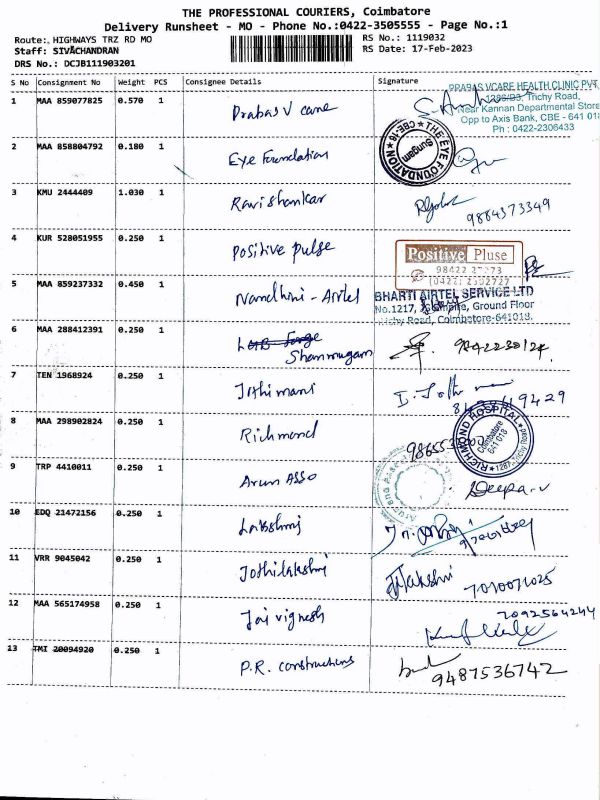 THE PROFESSIONAL COURIERS, Coimbatore
Delivery Runsheet - MO - Phone No.:0422-3505555 - Page No.:1
Route: HIGHWAYS TRZ RD MO
RS No.: 1119032
Staff: SIVACHANDRAN
RS Date: 17-Feb-2023
DRS No.: DCJB111903201
S No Consignment No Weight PCS Consignee Details Signature
1 MAA 859077825 0.570 1 Prabas V care
PRABAS VCARE HEALTH CLINIC PVT
Trichy Road,
Near Kannan Departmental Store
Opp to Axis Bank, CBE - 641 018
Ph : 0422-2306433
2 MAA 858804792 0.180 1 Eye Foundation
THE EYE FOUNDATION
Sungam
CBE-18
3 KMU 2444409 1.030 1 Ravishankar
9884373349
4 KUR 528051955 0.250 1 Positive pulse
Positive Pluse
98422 27273
(0422) 2302727
5 MAA 859237332 0.450 1 Nandhini - Airtel
BHARTI AIRTEL SERVICE LTD
No.1217, Ground Floor
Trichy Road, Coimbatore-641018.
6 MAA 288412391 0.250 1
Shanmugam
9842230124
7 TEN 1968924 0.250 1 Jothimani
8 MAA 298902824 0.250 1 Richmond
RICHMOND HOSPITAL
Coimbatore
641 018
9 TRP 4410011 0.250 1 Arun ASSO
Deepa.v
10 EDQ 21472156 0.250 1 Lakshmi
11 VRR 9045042 0.250 1 Jothilakshmi
7010071025
12 MAA 565174958 0.250 1 Jai vignesh
7092564244
13 TMI 20094920 0.250 1 P.R. constructions
9487536742